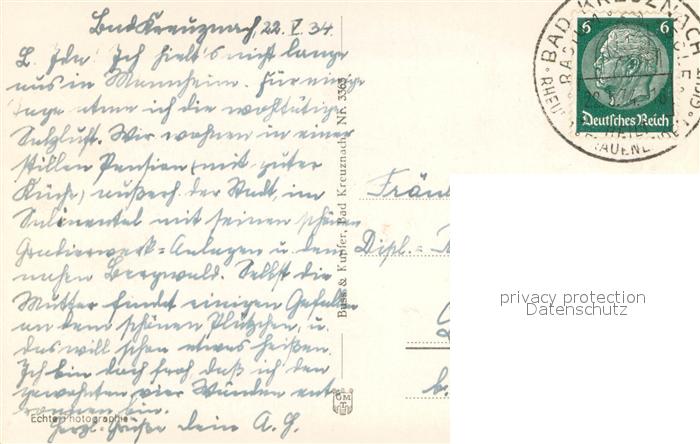 Bad Kreuznach 22. V. 34
L. Ida! Ich hielt's nicht lange
aus in Mannheim. Für einige
Tage atme ich die wohltätige
Salzluft. Wir wohnen in einer
stillen Pension (mit guter
Küche) außerh. der Stadt, im
Salinental mit seinen schönen
Gradierwerk-Anlagen u. dem
nahen Bergwald. Selbst die
Mutter findet einigen Gefallen
an dem schönen Plätzchen, u.
das will schon etwas heißen.
Ich bin doch froh daß ich den
gewohnten vier Wänden ent-
ronnen bin.
Herzl. Grüße dein A. G.
Echte Photographie
Buss & Kupfer, Bad Kreuznach, Nr. 3363
BAD KREUZNACH
RADIUM
6 6
Deutsches Reich
Fräul
Dipl.=
privacy protection
Datenschutz